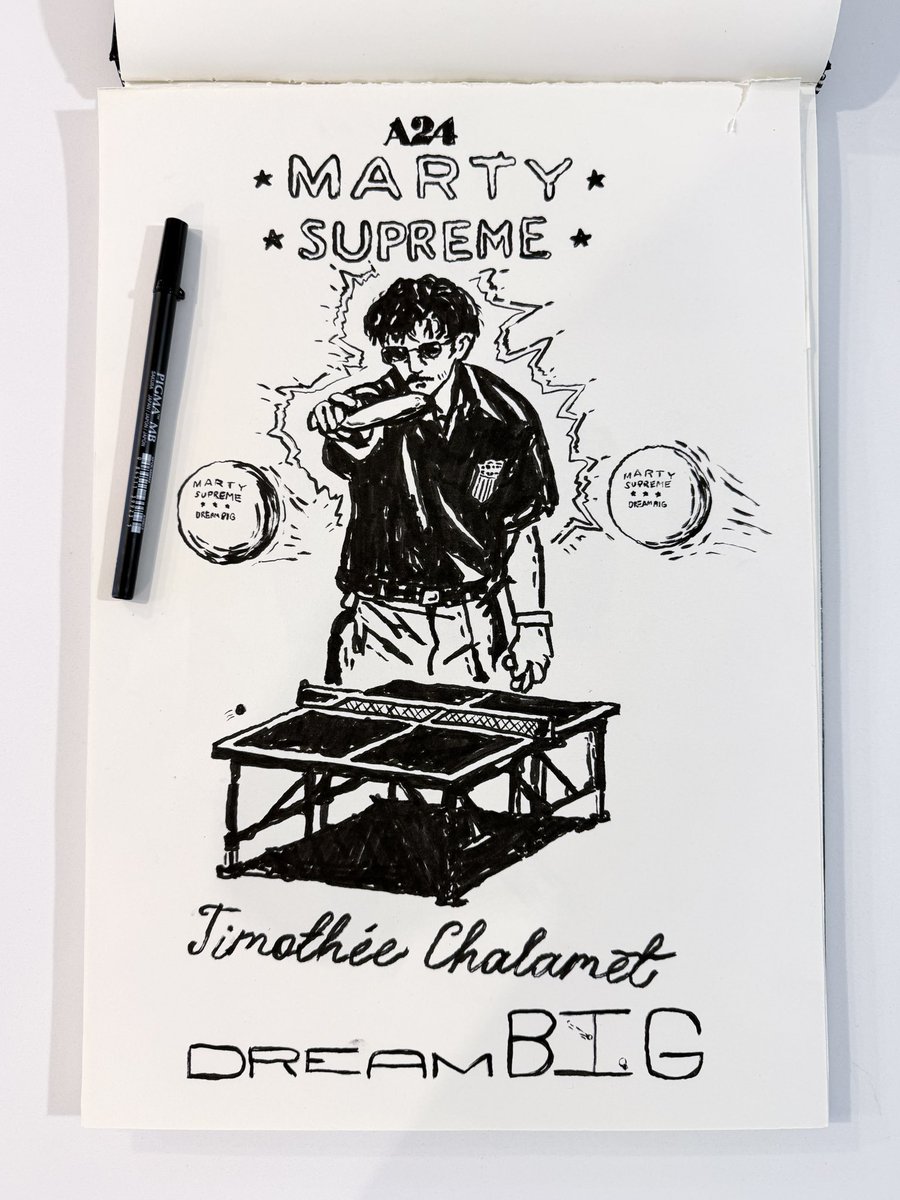 A24
MARTY
SUPREME
MARTY
SUPREME
DREAM BIG
MARTY
SUPREME
DREAM BIG
PIGMA MB
SAKURA
Timothée Chalamet
DREAM BIG